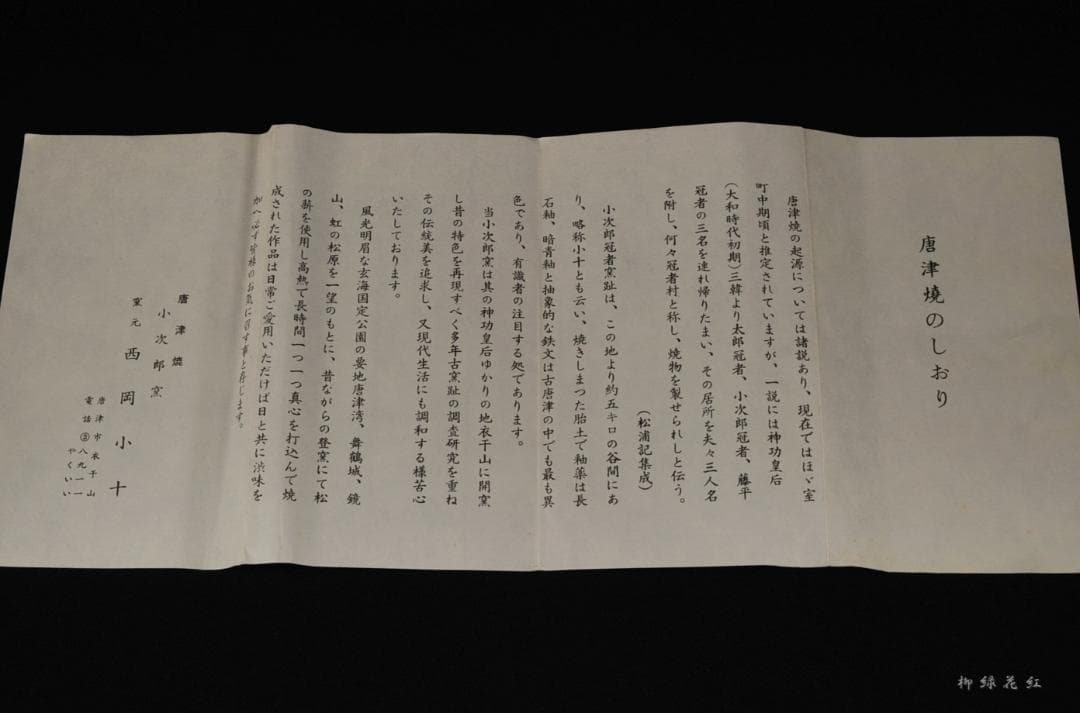 唐津燒のしおり
唐津焼の起源については諸説あり、現在ではほゞ室
町中期頃と推定されていますが、一説には神功皇后
(大和時代初期)三韓より太郎冠者、小次郎冠者、藤平
冠者の三名を連れ帰りたまい、その居所を夫々三人名
を附し、何々冠者村と称し、焼物を製せられしと伝う。
(松浦記集成)
小次郎冠者窯趾は、この地より約五キロの谷間にあ
り、略称小十とも云い、焼きしまつた胎土で釉薬は長
石釉、暗青釉と抽象的な鉄文は古唐津の中でも最も異
色であり、有識者の注目する処であります。
当小次郎窯は其の神功皇后ゆかりの地衣干山に開窯
し昔の特色を再現すべく多年古窯趾の調査研究を重ね
その伝統美を追求し、又現代生活にも調和する様苦心
いたしております。
風光明眉な玄海国定公園の要地唐津湾、舞鶴城、鏡
山、虹の松原を一望のもとに、昔ながらの登窯にて松
の薪を使用し高熱で長時間一つ一つ真心を打込んで焼
成された作品は日常ご愛用いただけば日と共に渋味を
加へ必ず皆様のお気に召す事と存じます。
唐津燒
小次郎窯
窯元 西岡小十
唐津市衣干山
電話③八九一一
やくいい
柳緑花紅